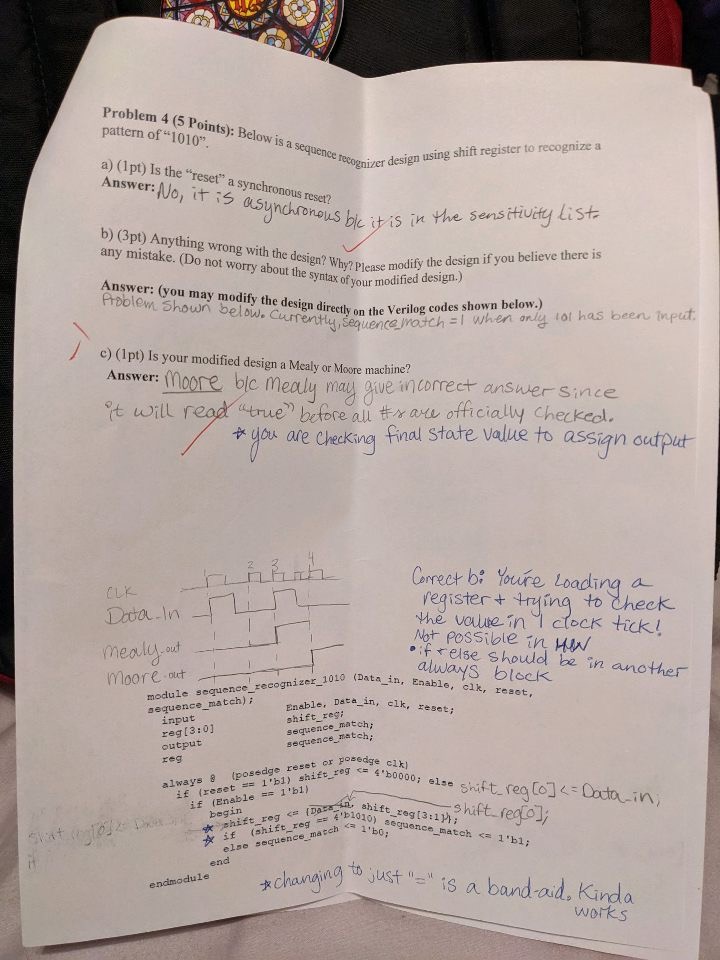 Problem 4 (5 Points): Below is a sequence recognizer design using shift register to recognize a
pattern of “1010”.
a) (1pt) Is the “reset” a synchronous reset?
Answer: No, it is asynchronous b/c it is in the sensitivity list.
b) (3pt) Anything wrong with the design? Why? Please modify the design if you believe there is
any mistake. (Do not worry about the syntax of your modified design.)
Answer: (you may modify the design directly on the Verilog codes shown below.)
Problem shown below. Currently, sequence_match =1 when only 101 has been input.
c) (1pt) Is your modified design a Mealy or Moore machine?
Answer: Moore b/c Mealy may give incorrect answer since
it will read "true" before all #s are officially checked.
* you are checking final state value to assign output
2 3 4
CLK
Data_In
Mealy_out
Moore_out
Correct b: You're loading a
register + trying to check
the value in 1 clock tick!
Not possible in HW
• if + else should be in another
always block
module sequence_recognizer_1010 (Data_in, Enable, clk, reset,
sequence_match);
input Enable, Data_in, clk, reset;
reg[3:0] shift_reg;
output sequence_match;
reg sequence_match;
always @ (posedge reset or posedge clk)
if (reset == 1'b1) shift_reg <= 4'b0000; else shift_reg[0] <= Data_in;
if (Enable == 1'b1)
begin shift_reg[0];
* shift_reg <= {Data_in, shift_reg[3:1]};
* if (shift_reg == 4'b1010) sequence_match <= 1'b1;
else sequence_match <= 1'b0;
end
endmodule
* changing to just "=" is a band-aid. Kinda
works